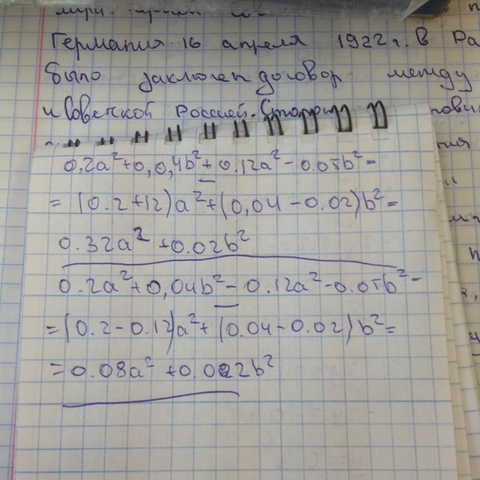 Германия 16 апреля 1922 г. в Ра
было заключен договор между
и Советской Россией.
0.2a²+0,04b²+0.12a²-0.05b²=
=(0.2+12)a²+(0,04-0.02)b²=
0.32a²+0.02b²
0.2a²+0,04b²-0.12a²-0.05b²=
=(0.2-0.12)a²+(0.04-0.02)b²=
=0.08a²+0.022b²